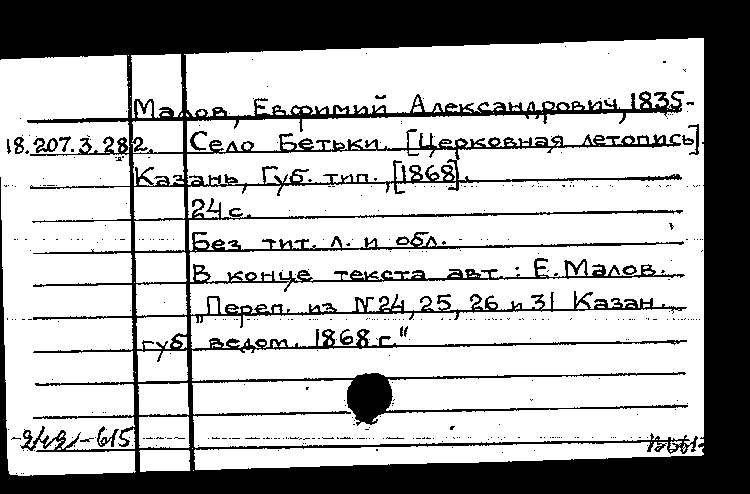 Малов, Евфимий Александрович, 1835-
18.207.3.282. Село Бетьки. [Церковная летопись].
Казань, Губ. тип., [1868].
24 с.
Без тит. л. и обл.
В конце текста авт.: Е. Малов.
„Переп. из N 24, 25, 26 и 31 Казан.
губ. ведом. 1868 г."